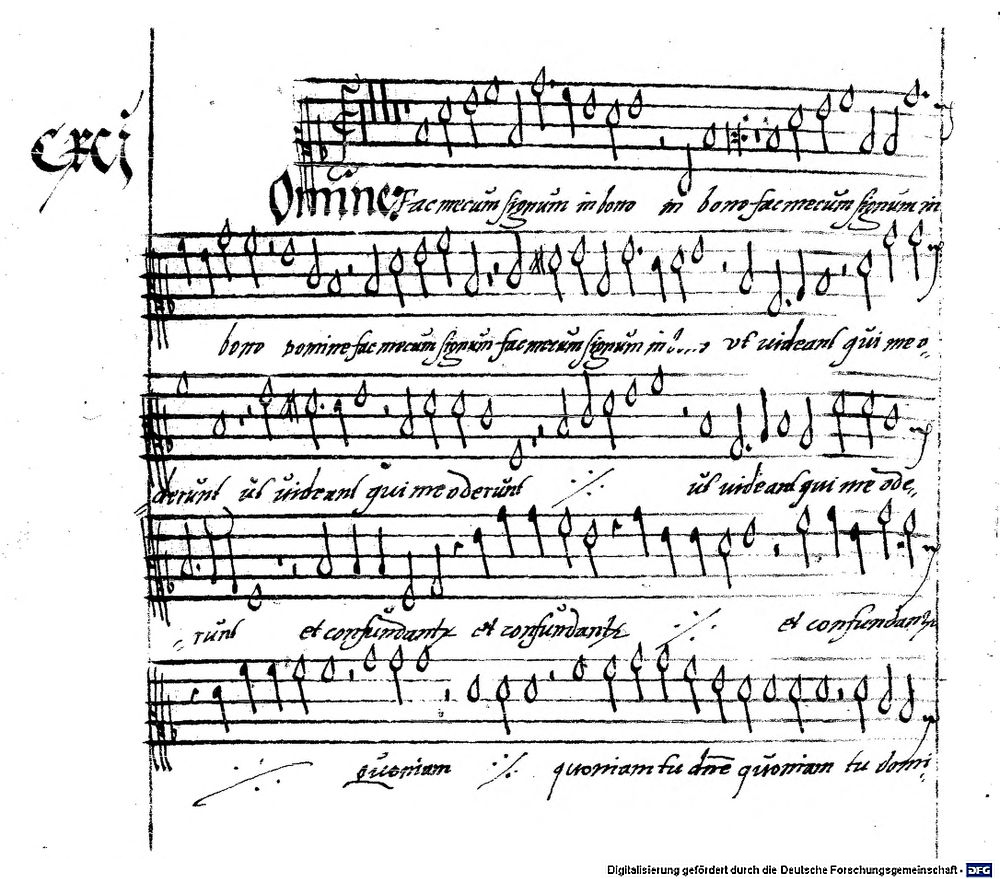 Domine Fac mecum signum in bono in bono fac mecum signum in
bono domine fac mecum signum fac mecum signum in bono ut videant qui me o
derunt ut videant qui me oderunt ut videant qui me ode
runt et confundantr et confundantr et confundantr
quoniam quoniam tu dñe quoniam tu domi
Digitalisierung gefördert durch die Deutsche Forschungsgemeinschaft - DFG